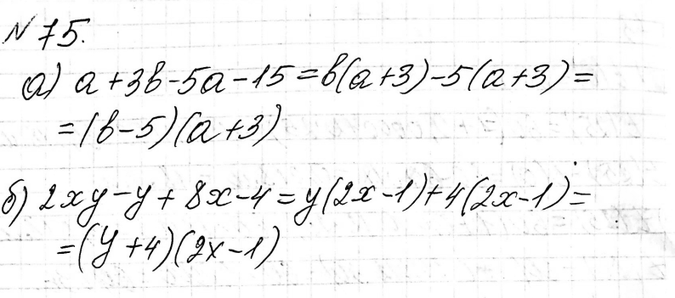 № 75.
а) a + 3b - 5a - 15 = b(a + 3) - 5(a + 3) =
= (b - 5)(a + 3)
б) 2xy - y + 8x - 4 = y(2x - 1) + 4(2x - 1) =
= (y + 4)(2x - 1)